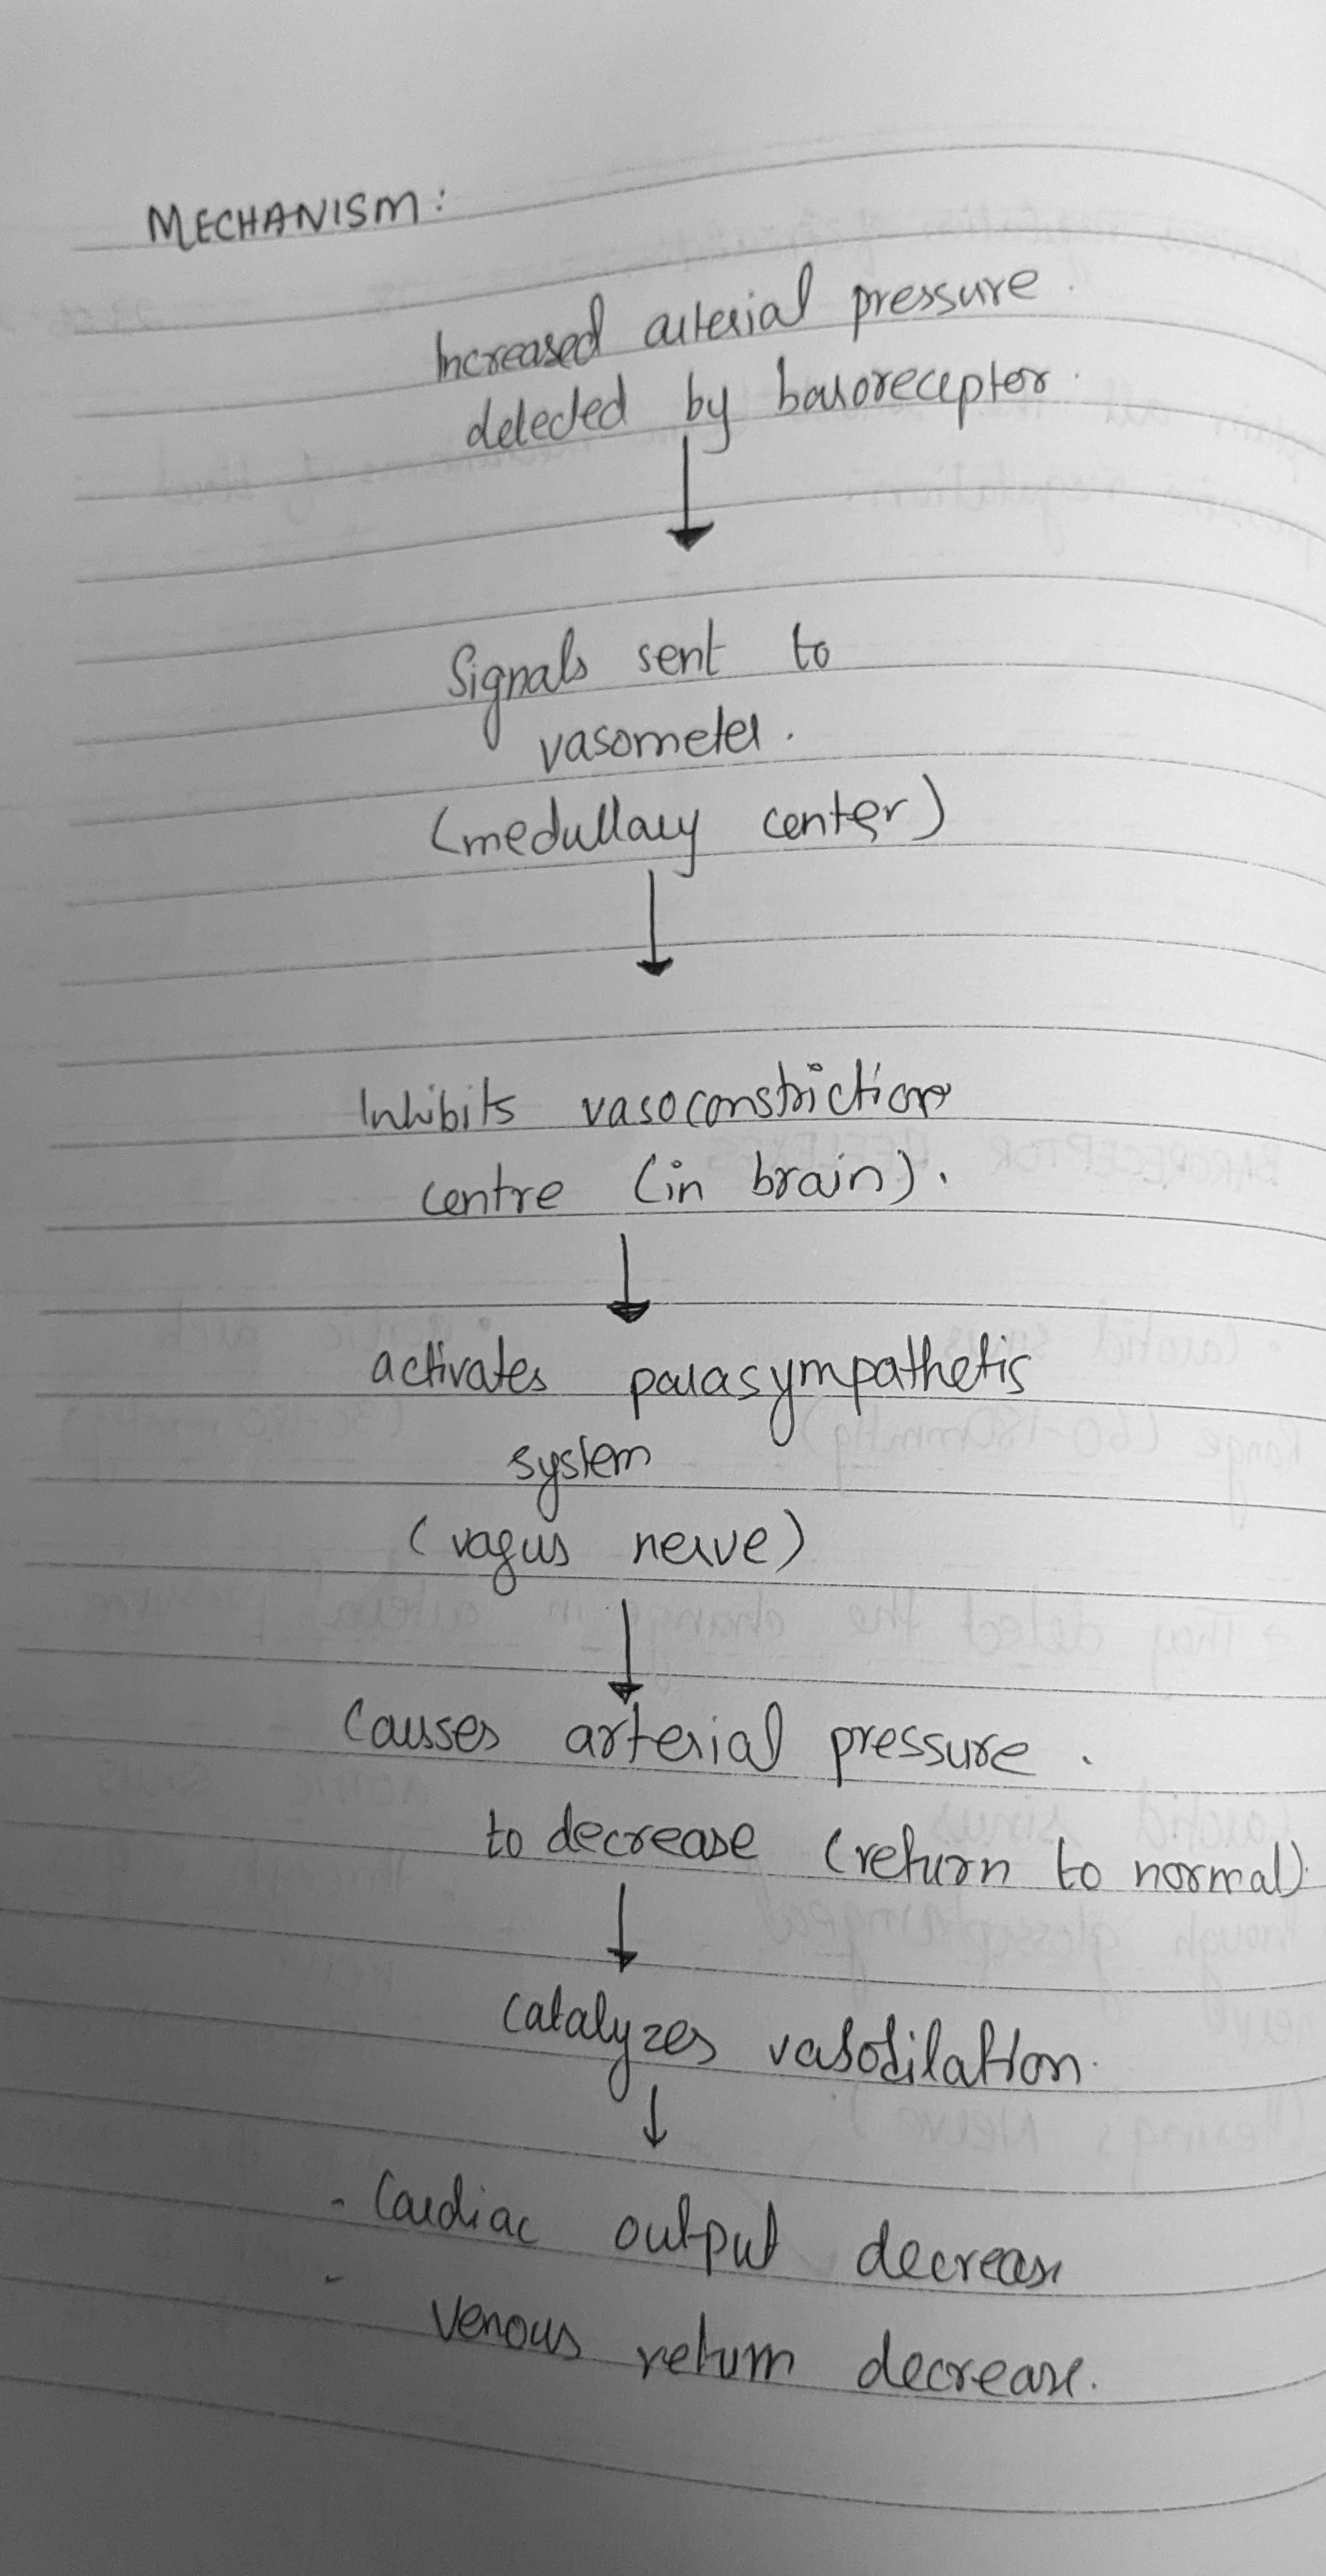 MECHANISM:
Increased arterial pressure.
detected by baroreceptor.
Signals sent to
vasometer.
(medullary center)
Inhibits vasoconstriction
centre (in brain).
activates parasympathetis
system
(vagus nerve)
Causes arterial pressure.
to decrease (return to normal).
Catalyzes vasodilation.
- Cardiac output decrease
- Venous return decrease.